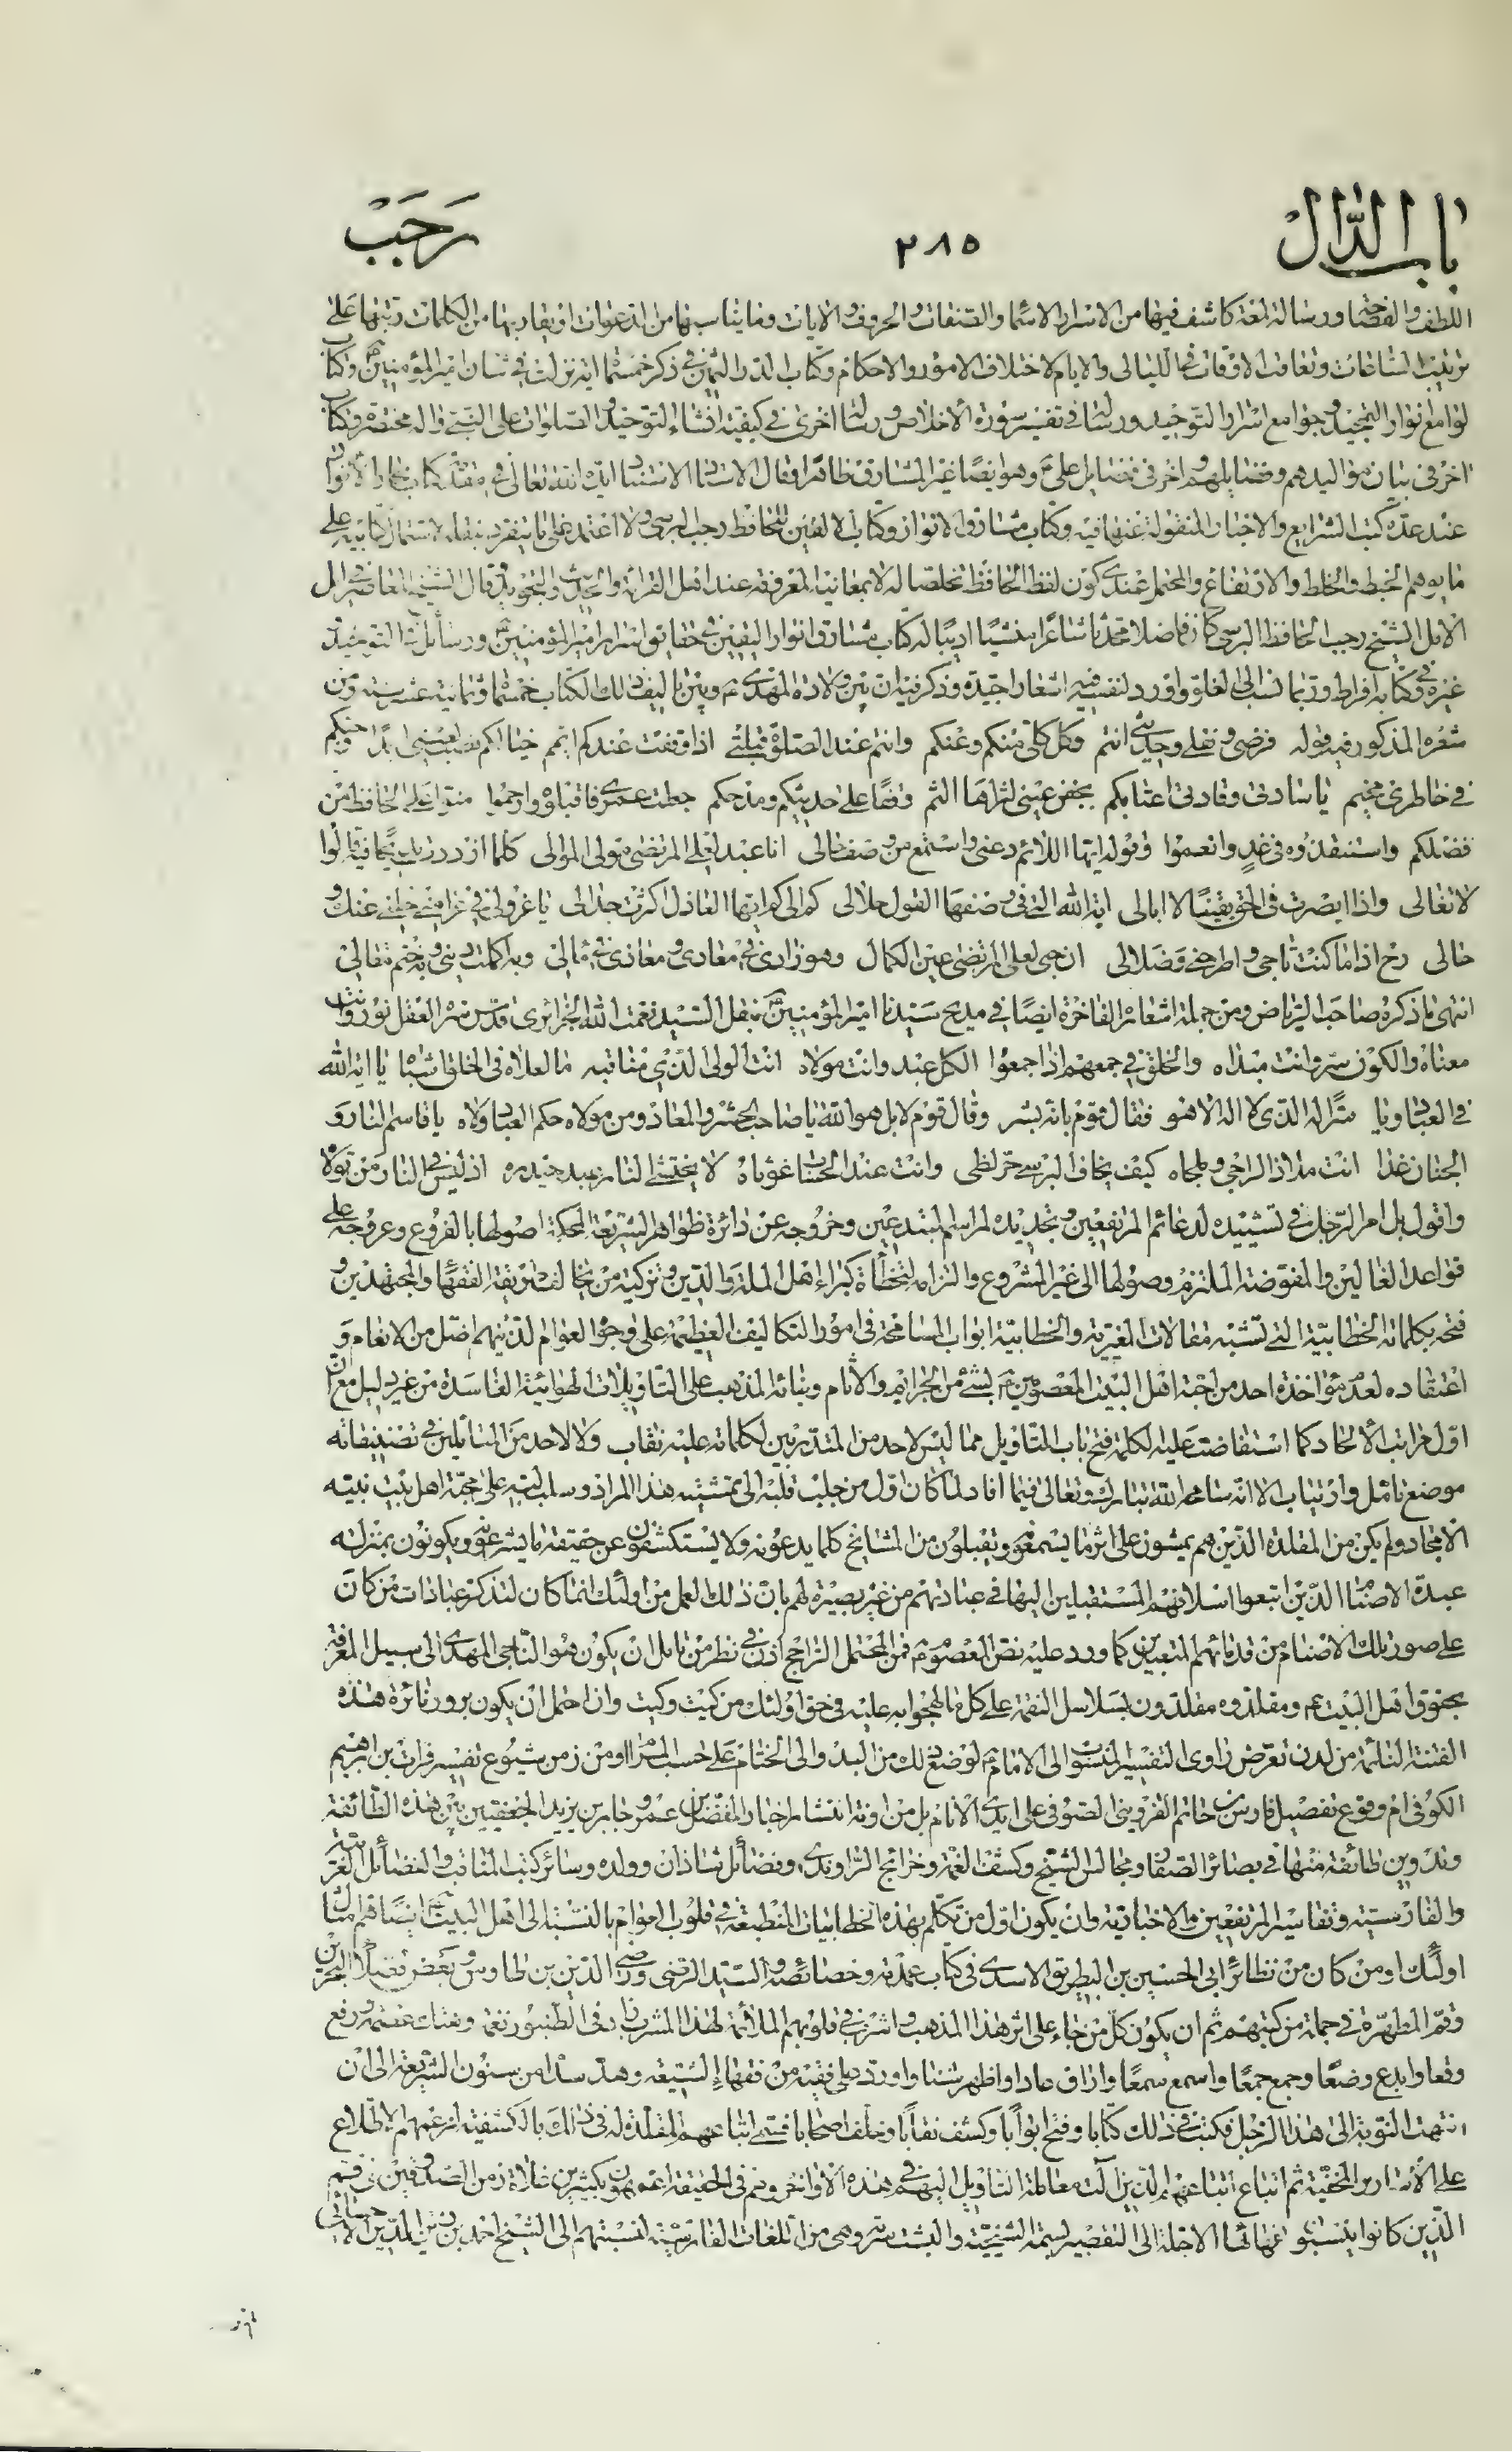 باب الدّال
٢٨٥
رَجَبْ
اللطف والفصاحة ورسالة لمعة كاشف فيها من الاسرار الاسماء والصفات والحروف والايات وما يناسبها من الدعوات او يقاربها من الكلمات رتبها على
ترتيب الساعات وتعاقب الاوقات في الليالى والايام لاختلاف الامور والاحكام وكتاب الدر الثمين في ذكر خمسمائة اية نزلت في شان امير المؤمنين وكتاب
لوامع انوار التمجيد وجوامع اسرار التوحيد ورسالة في تفسير سورة الاخلاص ورسالة اخرى في كيفية انشاء التوحيد والصلوات على النبى واله مختصرة وكتاب
اخر فى بيان مواليدهم وفضايلهم واخر فى فضايل على وهو ايضا غير المشارق ظاهرا وقال الاستاد الاستناد ايده الله تعالى في مقدمة كتاب بحار الانوار
عند عده كتب الشرايع والاخبار المنقولة عنها فيه وكتاب مشارق الانوار وكتاب الالفين للحافظ رجب البرسى ولا اعتمد على ما يتفرد بنقله لاشتمال كتابيه على
ما يوهم الخبط والخلط والارتفاع والمحتمل عندى كون لفظ الحافظ تخلصا له لا بمعانيه المعروفة عند اهل القرائة والحديث والتجويد وقال الشيخ المعاصر في امل
الامل الشيخ رجب الحافظ البرسى كان فاضلا محدثا شاعرا منشيا اديبا له كتاب مشارق انوار اليقين في حقايق اسرار امير المؤمنين ورسائل في التوحيد
وغيره وفي كتابه افراط وربما نسب الى الغلو واورد لنفسه فيه اشعارا جيدة وذكر فيه ان بين ولادة المهدى ع وبين تاليف ذلك الكتاب خمسمائة وثمانية عشر سنة ومن
شعره المذكور فيه قوله فرضى ونفلى وحديثى انتم وكل كلى منكم وعنكم وانتم عند الصلوة قبلتى اذا وقفت عندكم ايمم خيالكم نصب لعينى ابدا وحبكم
في خاطرى مخيم يا سادتى وقادتى اعتابكم بجفن عينى لثراها الثم وقفا على حديثكم ومدحكم جعلت عمرى فاقبلوه وارحموا منوا على الحافظ من
فضلكم واستنقذوه فى غد وانعموا وقوله ايها اللائم دعنى واستمع من وصف حالى انا عبد لعلى المرتضى مولى الموالى كلما ازددت مديحا فيه قالوا
لا تغالى واذا ابصرت فى الحق يقينا لا ابالى اية الله التى فى وصفها القول حلالى كم الى كم ايها العاذل اكثرت جدالى يا عذولى في غرامى خلنى عنك و
حالى رح اذا ما كنت ناجى واطرحنى وضلالى ان حبى لعلى المرتضى عين الكمال وهو زادى في معادى ومعاذى في مالى وبه اكملت دينى وبه ختم مقالى
انتهى ما ذكره صاحب الرياض ومن جملة اشعاره الفاخرة ايضا في مديح سيدنا امير المؤمنين نقل السيد نعمت الله الجزائرى قدس سره العقل نور وانت
معناه والكون سر وانت مبداه والخلق في جمعهم اذا جمعوا الكل عبد وانت مولاه انت الولى الذى مناقبه ما لعلاه فى الخلق اشباه يا اية الله
في العباد ويا سر اله الذى لا اله الا هو فقال قوم بانه بشر وقال قوم لا بل هو الله يا صاحب الحشر والمعاد ومن مولاه حكم العباد ولاه يا قاسم النار و
الجنان غدا انت ملاذ الراجى وملجاه كيف يخاف البرسى حر لظى وانت عند الحساب غوثاه لا يختشى النار عبد حيدره اذ ليس في النار من تولاه
واقول بل امر الرجل في تشييده لدعائم المرتفعين وتجديده لمراسم المبتدعين وخروجه عن دائرة ظواهر الشريعة المحكمة اصولها بالفروع وعروجه على
قواعد الغالين والمفوضة الملتزم وصولها الى غير المشروع والتزامه لتخطاة كبراء اهل الملة والدين وتزكية من يخالف طريقة الفقهاء والمجتهدين و
فتحه بكلماته الخطابية التى تشبه مقالات المغيرية والخطابية ابواب المسامحة فى امور التكاليف العظيمة على وجوه العوام الذينهم اضل من الانعام و
اعتقاده لعدم مؤاخذة احد من احبة اهل البيت المعصومين ع بشئ من الجرائم والاثام وبنائه المذهب على التاويلات الهوائية الفاسدة من غير دليل مع ان
اول مراتب الالحاد كما استفاضت عليه الكلمة فتح باب التاويل مما ليس لاحد من المتدربين لكلماته عليه نقاب ولا لاحد من المتاملين في تصنيفاته
موضع تامل وارتياب الا انه سامحه الله تبارك وتعالى فيما افاد لما كان اول من جلب قلبه الى تمشية هذا المراد وسلب لبه على محبة اهل بيت نبيه
الامجاد ولم يكن من المقلدة الذين هم يمشون على اثر ما يسمعون ويقبلون من المشايخ كلما يدعونه ولا يستكشفون عن حقيقة ما يشرعونه ويكونون بمنزلة
عبدة الاصنام الذين اتبعوا اسلافهم المستقبلين اليها في عباداتهم من غير بصيرة لهم بان ذلك العمل من اولئك انما كان لتذكر عبادات من كان
على صور تلك الاصنام من قدمائهم المتعبدين كما ورد عليه نص المعصوم ع فمن المحتمل الراجح اذن في نظر من تامل ان يكون هو الناجى المهدى الى سبيل المعرفة
بحقوق اهل البيت ع ومقلدوه مقلدون بسلاسل النقمة على كل ما لهجوا به عليه فى حق اولئك من كيت وكيت وان احتمل ان يكون بروز نائرة هذه
الفتنة النائمة من لدن تعرض راوى التفسير المنسوب الى الامام ع لوضع ذلك من البدو الى الختام على حسب المرام او من زمن شيوع تفسير فرات بن ابرهيم
الكوفى ام وقوع تفصيل فارس بن حاتم القزوينى الصوفى على ايدى الانام بل من اونة انتشار اخبار المفضل بن عمرو وجابر بن يزيد الجعفيين بين هذه الطائفة
وتدوين طائفة منها في بصائر الصفار ومجالس الشيخ وكشف الغمة وخرائج الراوندى وفضائل شاذان وولده وسائر كتب المناقب والفضائل العربية
والفارسية وتفاسير المرتفعين والاخبارية وان يكون اول من تكلم بهذه الخطابيات المنطبعة في قلوب العوام بالنسبة الى اهل البيت ايضا هم امثال
اولئك او من كان من نظائر ابى الحسين بن البطريق الاسدى فى كتاب عمدته وخصائصه والسيد الرضى ورضى الدين بن طاوس وبعض فضلاء البحرين
وقم المطهرة في جملة من كتبهم ثم ان يكون كل من جاء على اثر هذا المذهب واشرب في قلوبهم الملائمة لهذا المشرب زاد فى الطنبور نغمة ونفثات عقدة ورفع
وقعا وابدع وضعا وجمع جمعا واسمع سمعا واراق مادا واظهر شنا واورد على فقيه من فقهاء الشيعة وهد سدا من سنون الشريعة الى ان
انتهت النوبة الى هذا الرجل فكتب في ذلك كتابا وفتح ابوابا وكشف نقابا وخلف اصحابا فسمى اتباعهم المقلدة له فى ذلك بالكشفية لزعمهم الاطلاع
على الاسرار المخفية ثم اتباع اتباعهم الذين الت معاملة التاويل اليهم في هذه الاواخر وهم فى الحقيقة اعمهون بكثير من غلاة زمن الصدوقين فى قم
الذين كانوا ينسبون فقهائها الاجلة الى التقصير بسمة الشيخية والپشت سرية وهى من اللغات الفارسية لنسبتهم الى الشيخ احمد بن زين الدين الاحسائى